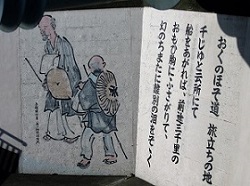 おくのほそ道 旅立ちの地
千じゆと云所にて
船をあがれば、前途三千里の
おもひ胸にふさがりて、
幻のちまたに離別の泪をそゝぐ